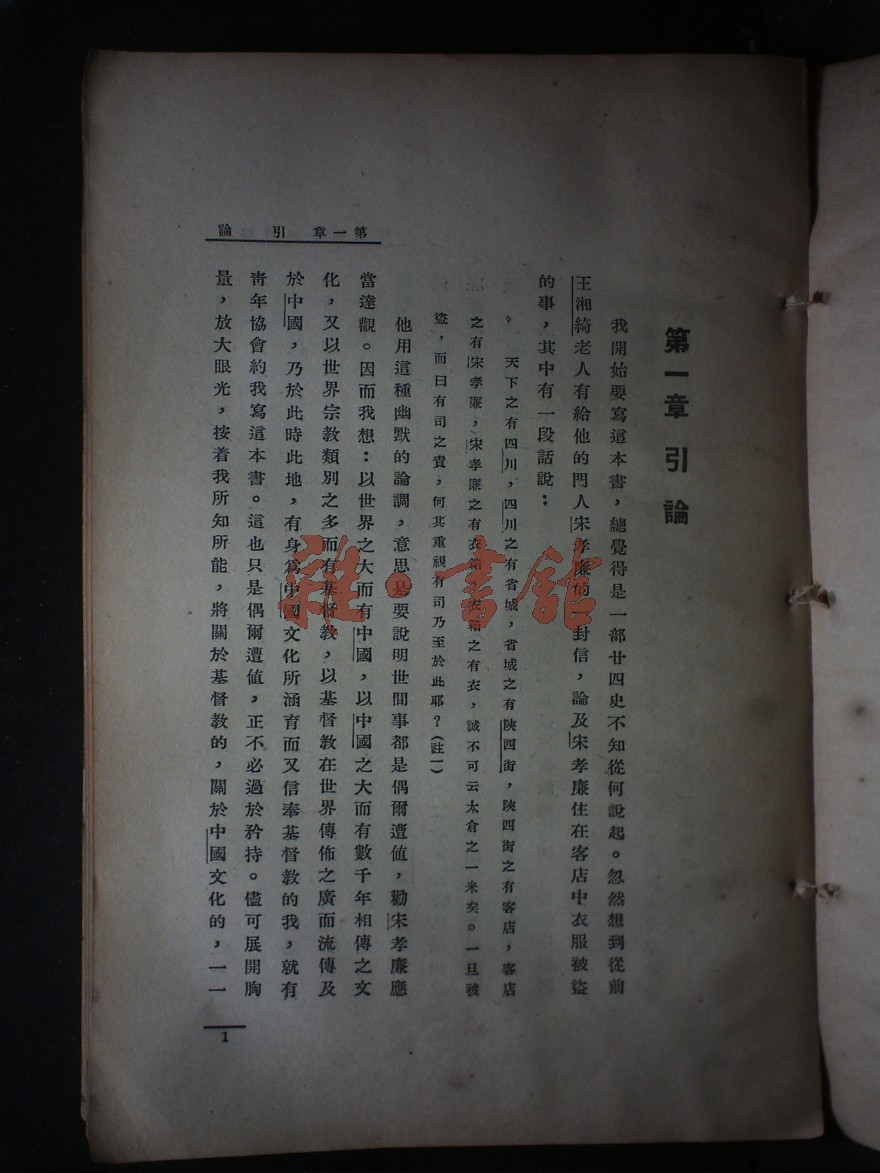 第一章 引論
我開始要寫這本書，總覺得是一部廿四史不知從何說起。忽然想到從前
王湘綺老人有給他的門人宋孝廉的一封信，論及宋孝廉住在客店中衣服被盜
的事，其中有一段話說：
。天下之有四川，四川之有省城，省城之有陝西街，陝西街之有客店，客店
之有宋孝廉，宋孝廉之有衣箱，衣箱之有衣，誠不可云太倉之一米矣。一旦被
盜，而曰有司之責，何其重視有司乃至於此耶？(註一)
他用這種幽默的論調，意思是要說明世間事都是偶爾遭値，勸宋孝廉應
當達觀。因而我想：以世界之大而有中國，以中國之大而有數千年相傳之文
化，又以世界宗教類別之多而有基督教，以基督教在世界傳佈之廣而流傳及
於中國，乃於此時此地，有身爲中國文化所涵育而又信奉基督教的我，就有
靑年協會約我寫這本書。這也只是偶爾遭値，正不必過於矜持。儘可展開胸
量，放大眼光，按着我所知所能，將關於基督教的，關於中國文化的，一一
第一章 引論
1
雜·書館